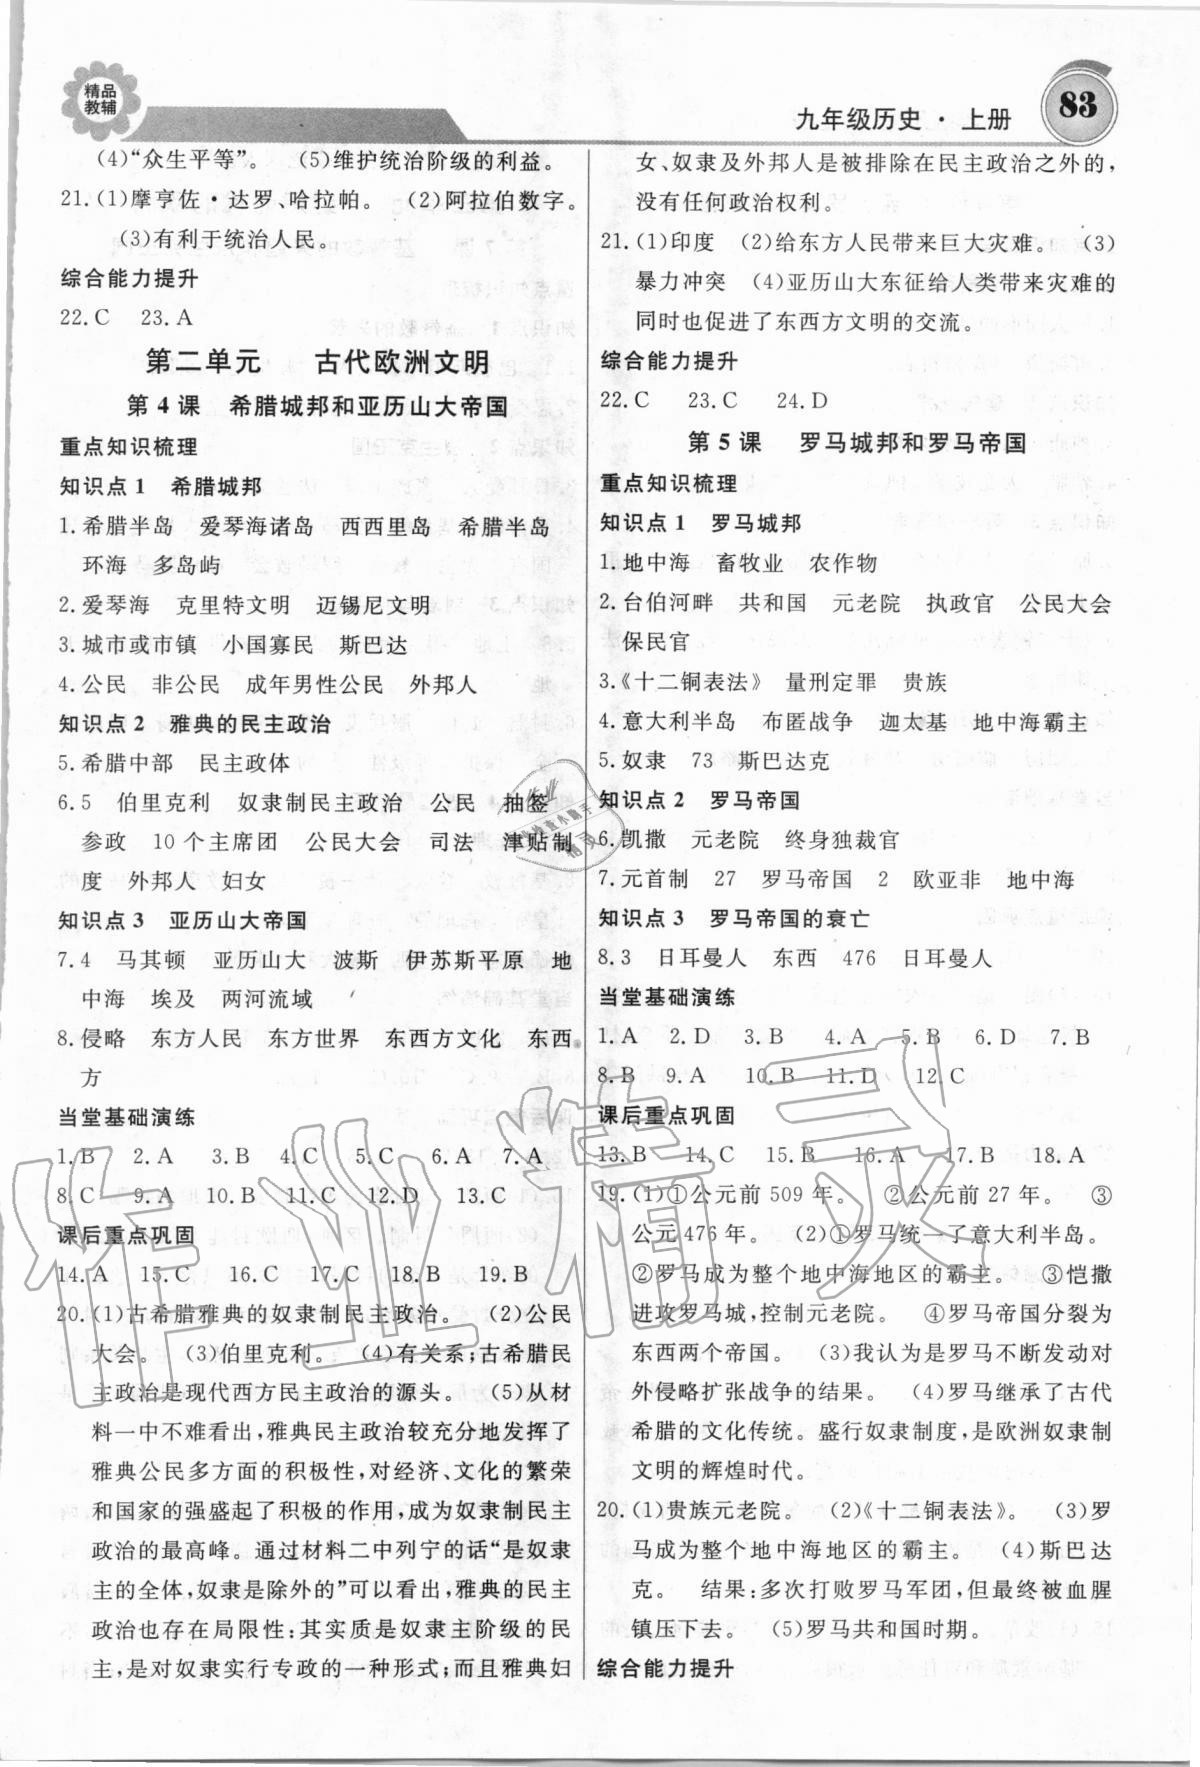 精品
教辅
九年级历史·上册
83
(4)“众生平等”。 (5)维护统治阶级的利益。
21.(1)摩亨佐·达罗、哈拉帕。 (2)阿拉伯数字。
(3)有利于统治人民。
综合能力提升
22.C 23.A
第二单元 古代欧洲文明
第4课 希腊城邦和亚历山大帝国
重点知识梳理
知识点1 希腊城邦
1.希腊半岛 爱琴海诸岛 西西里岛 希腊半岛
环海 多岛屿
2.爱琴海 克里特文明 迈锡尼文明
3.城市或市镇 小国寡民 斯巴达
4.公民 非公民 成年男性公民 外邦人
知识点2 雅典的民主政治
5.希腊中部 民主政体
6.5 伯里克利 奴隶制民主政治 公民 抽签
参政 10个主席团 公民大会 司法 津贴制
度 外邦人 妇女
知识点3 亚历山大帝国
7.4 马其顿 亚历山大 波斯 伊苏斯平原 地
中海 埃及 两河流域
8.侵略 东方人民 东方世界 东西方文化 东西
方
当堂基础演练
1.B 2.A 3.B 4.C 5.C 6.A 7.A
8.C 9.A 10.B 11.C 12.D 13.C
课后重点巩固
14.A 15.C 16.C 17.C 18.B 19.B
20.(1)古希腊雅典的奴隶制民主政治。 (2)公民
大会。 (3)伯里克利。 (4)有关系;古希腊民
主政治是现代西方民主政治的源头。 (5)从材
料一中不难看出,雅典民主政治较充分地发挥了
雅典公民多方面的积极性,对经济、文化的繁荣
和国家的强盛起了积极的作用,成为奴隶制民主
政治的最高峰。通过材料二中列宁的话“是奴隶
主的全体,奴隶是除外的”可以看出,雅典的民主
政治也存在局限性:其实质是奴隶主阶级的民
主,是对奴隶实行专政的一种形式;而且雅典妇
女、奴隶及外邦人是被排除在民主政治之外的,
没有任何政治权利。
21.(1)印度 (2)给东方人民带来巨大灾难。 (3)
暴力冲突 (4)亚历山大东征给人类带来灾难的
同时也促进了东西方文明的交流。
综合能力提升
22.C 23.C 24.D
第5课 罗马城邦和罗马帝国
重点知识梳理
知识点1 罗马城邦
1.地中海 畜牧业 农作物
2.台伯河畔 共和国 元老院 执政官 公民大会
保民官
3.《十二铜表法》 量刑定罪 贵族
4.意大利半岛 布匿战争 迦太基 地中海霸主
5.奴隶 73 斯巴达克
知识点2 罗马帝国
6.凯撒 元老院 终身独裁官
7.元首制 27 罗马帝国 2 欧亚非 地中海
知识点3 罗马帝国的衰亡
8.3 日耳曼人 东西 476 日耳曼人
当堂基础演练
1.A 2.D 3.B 4.A 5.B 6.D 7.B
8.B 9.A 10.B 11.D 12.C
课后重点巩固
13.B 14.C 15.B 16.A 17.B 18.A
19.(1)①公元前509年。 ②公元前27年。 ③
公元476年。 (2)①罗马统一了意大利半岛。
②罗马成为整个地中海地区的霸主。 ③恺撒
进攻罗马城,控制元老院。 ④罗马帝国分裂为
东西两个帝国。 (3)我认为是罗马不断发动对
外侵略扩张战争的结果。 (4)罗马继承了古代
希腊的文化传统。盛行奴隶制度,是欧洲奴隶制
文明的辉煌时代。
20.(1)贵族元老院。 (2)《十二铜表法》。 (3)罗
马成为整个地中海地区的霸主。 (4)斯巴达
克。 结果:多次打败罗马军团,但最终被血腥
镇压下去。 (5)罗马共和国时期。
综合能力提升
作业精灵